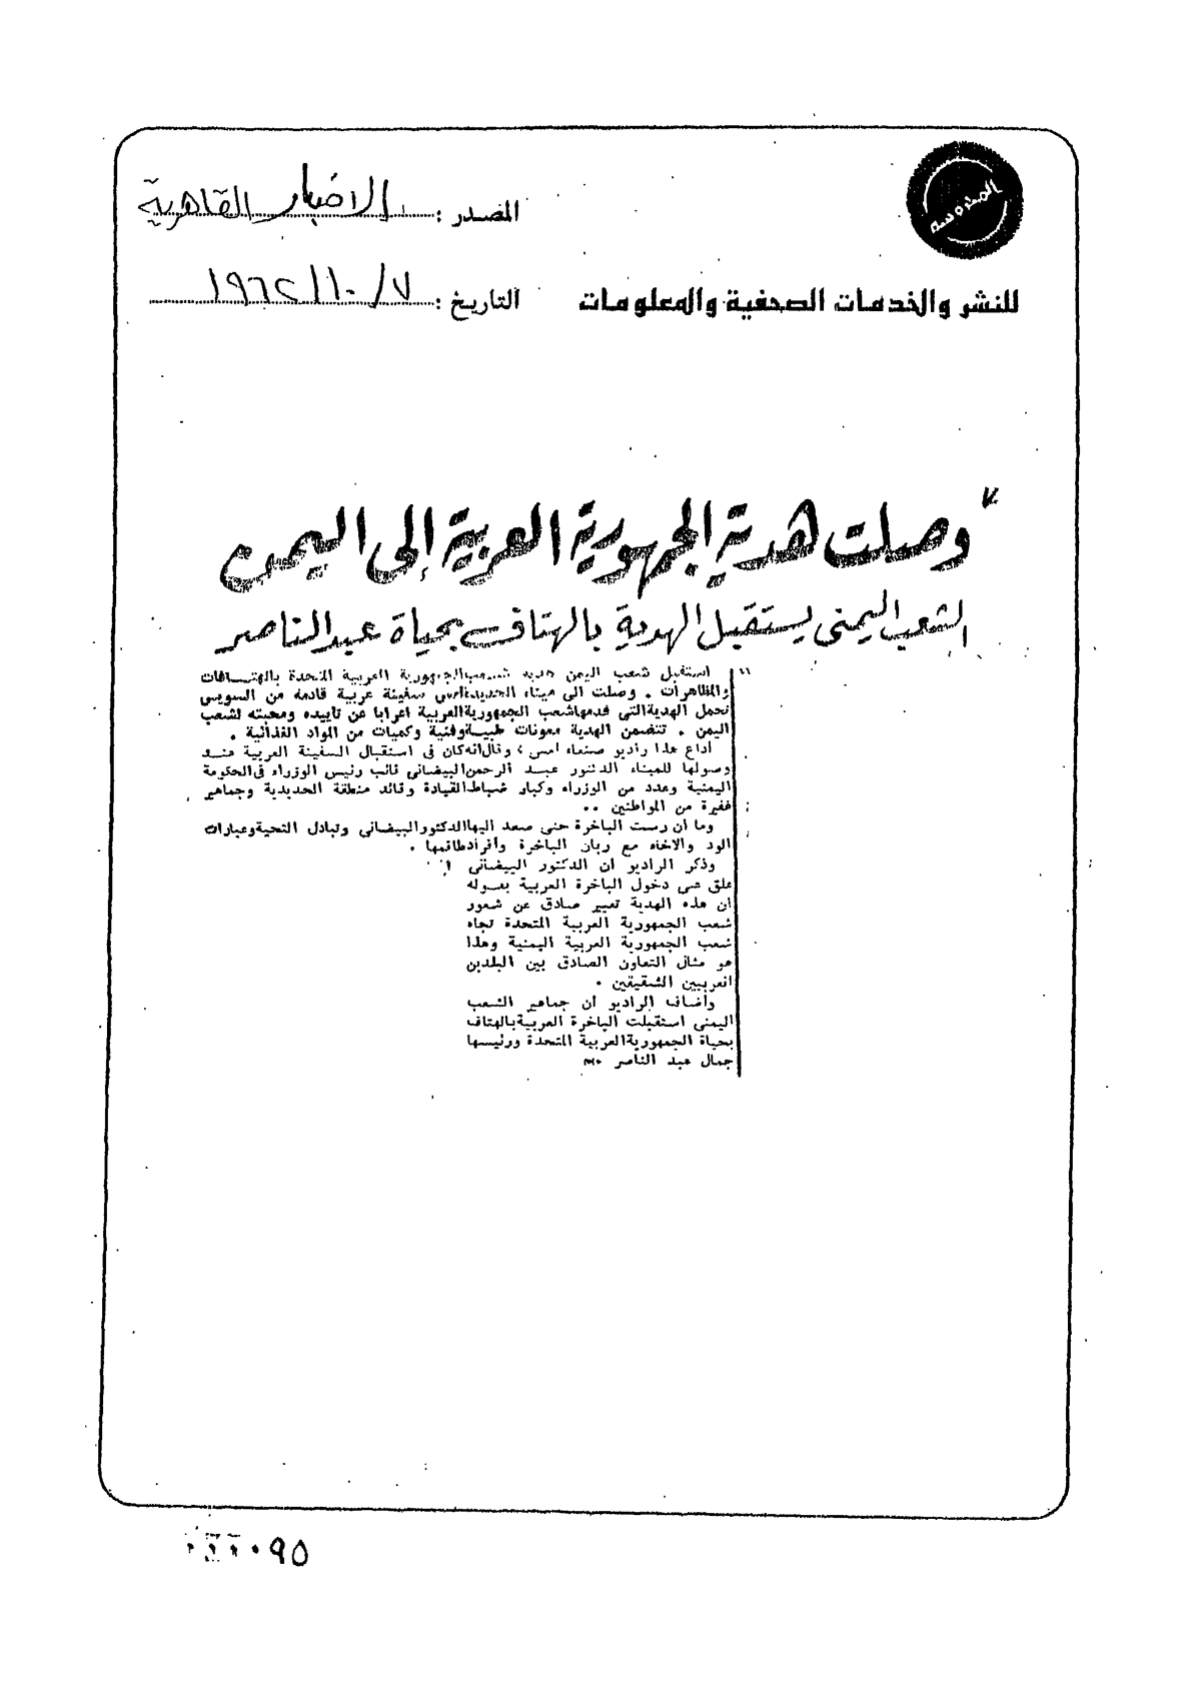 المحروسة
المصدر : الاخبار القاهرية
للنشر والخدمات الصحفية والمعلومات
التاريخ : ٧/١٠/١٩٦٢
وصلت هدية الجمهورية العربية إلى اليمن
الشعب اليمنى يستقبل الهدية بالهتاف بحياة عبد الناصر
استقبل شعب اليمن هدية شعب الجمهورية العربية المتحدة بالهتافات
والمظاهرات . وصلت الى ميناء الحديدة أمس سفينة عربية قادمة من السويس
تحمل الهدية التى قدمها شعب الجمهورية العربية اعرابا عن تأييده ومحبته لشعب
اليمن . تتضمن الهدية معونات طبية وفنية وكميات من المواد الغذائية .
أذاع هذا راديو صنعاء أمس ، وقال انه كان فى استقبال السفينة العربية عند
وصولها للميناء الدكتور عبد الرحمن البيضانى نائب رئيس الوزراء فى الحكومة
اليمنية وعدد من الوزراء وكبار ضباط القيادة وقائد منطقة الحديدية وجماهير
غفيرة من المواطنين ..
وما أن رست الباخرة حتى صعد اليها الدكتور البيضانى وتبادل التحية وعبارات
الود والاخاء مع ربان الباخرة وأفراد طاقمها .
وذكر الراديو أن الدكتور البيضانى
علق على دخول الباخرة العربية بقوله
ان هذه الهدية تعبير صادق عن شعور
شعب الجمهورية العربية المتحدة تجاه
شعب الجمهورية العربية اليمنية وهذا
هو مثال التعاون الصادق بين البلدين
العربيين الشقيقين .
وأضاف الراديو أن جماهير الشعب
اليمنى استقبلت الباخرة العربية بالهتاف
بحياة الجمهورية العربية المتحدة ورئيسها
جمال عبد الناصر
٠٩٥